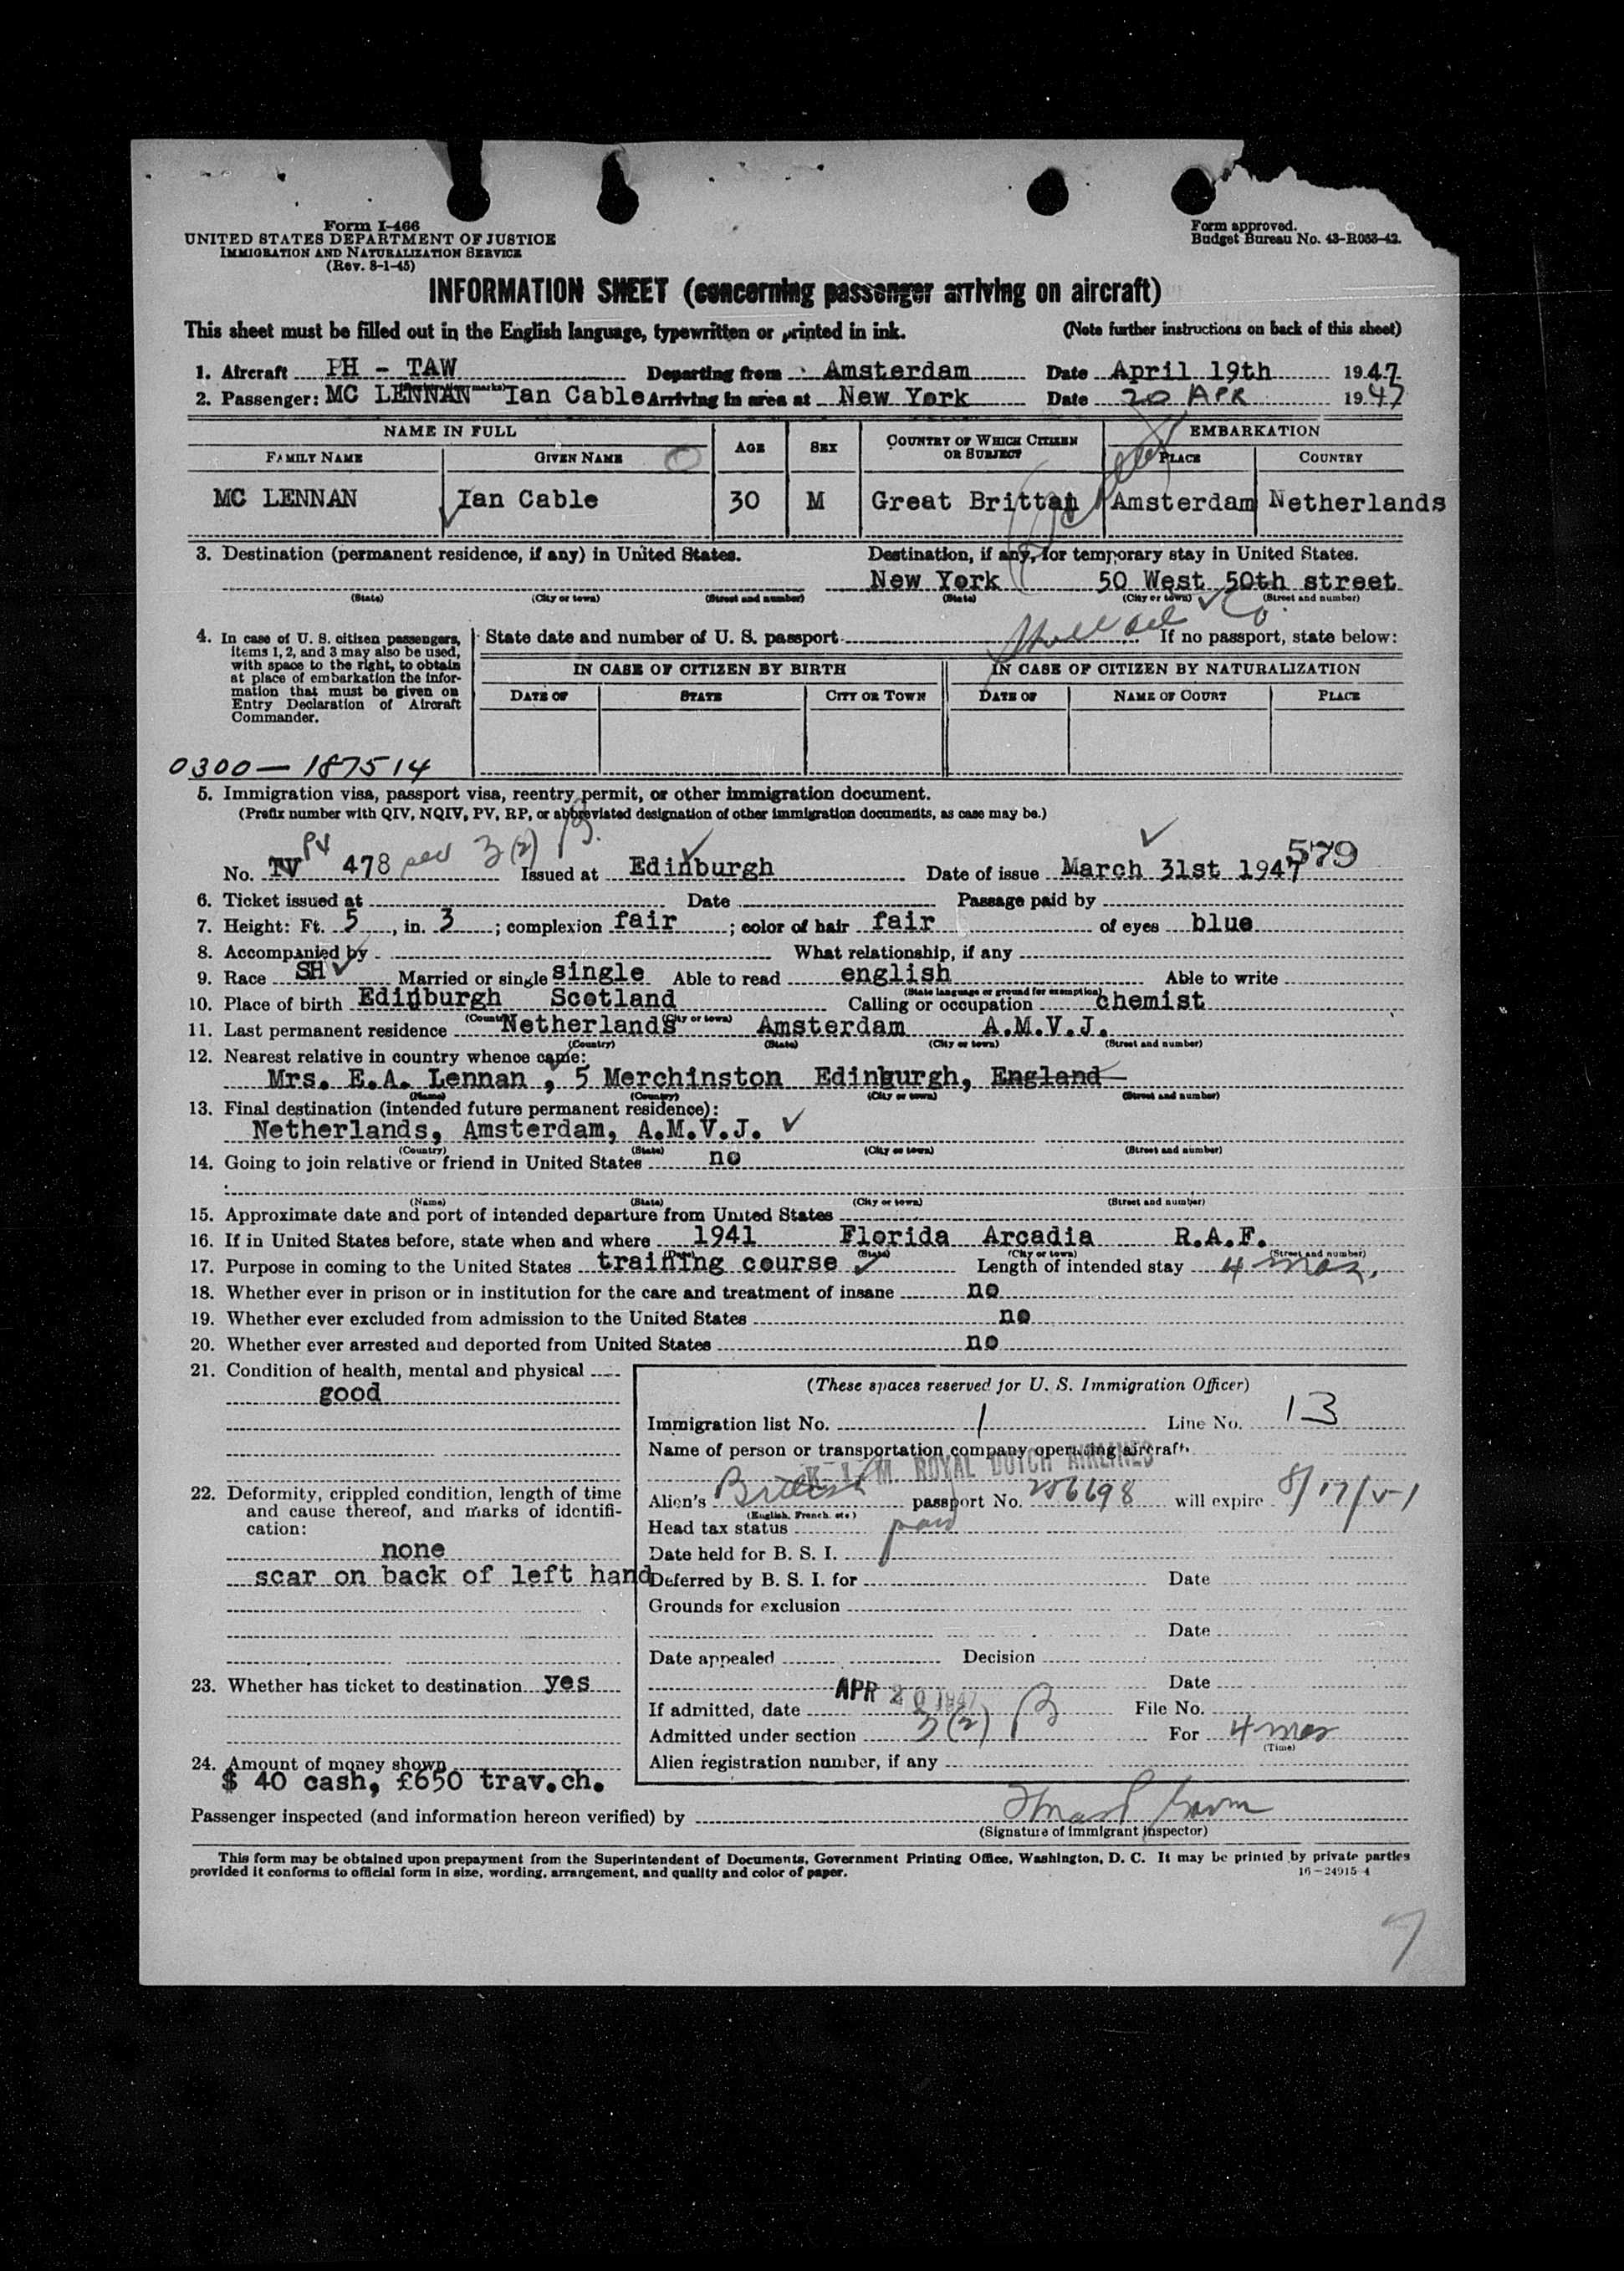 Form I-466
UNITED STATES DEPARTMENT OF JUSTICE
IMMIGRATION AND NATURALIZATION SERVICE
(Rev. 8-1-45)
Form approved.
Budget Bureau No. 43-R053-42.
INFORMATION SHEET (concerning passenger arriving on aircraft)
This sheet must be filled out in the English language, typewritten or printed in ink. (Note further instructions on back of this sheet)
1. Aircraft PH - TAW Departing from Amsterdam Date April 19th 1947
2. Passenger: MC LENNAN Ian Cable Arriving in area at New York Date 20 APR 1947
NAME IN FULL AGE SEX COUNTRY OF WHICH CITIZEN OR SUBJECT EMBARKATION
FAMILY NAME GIVEN NAME PLACE COUNTRY
MC LENNAN Ian Cable 30 M Great Brittan Amsterdam Netherlands
3. Destination (permanent residence, if any) in United States. Destination, if any, for temporary stay in United States.
New York 50 West 50th street
(State) (City or town) (Street and number) (State) (City or town) (Street and number)
Shell Oil Co.
4. In case of U. S. citizen passengers, items 1, 2, and 3 may also be used, with space to the right, to obtain at place of embarkation the information that must be given on Entry Declaration of Aircraft Commander.
State date and number of U. S. passport If no passport, state below:
IN CASE OF CITIZEN BY BIRTH IN CASE OF CITIZEN BY NATURALIZATION
DATE OF STATE CITY OR TOWN DATE OF NAME OF COURT PLACE
0300-187514
5. Immigration visa, passport visa, reentry permit, or other immigration document.
(Prefix number with QIV, NQIV, PV, RP, or abbreviated designation of other immigration documents, as case may be.)
No. TV PV 478 sec 3(2) Issued at Edinburgh Date of issue March 31st 1947 579
6. Ticket issued at Date Passage paid by
7. Height: Ft. 5, in. 3; complexion fair; color of hair fair of eyes blue
8. Accompanied by What relationship, if any
9. Race SH Married or single single Able to read english Able to write
(State language or ground for exemption)
10. Place of birth Edinburgh Scotland Calling or occupation chemist
(Country) (City or town)
11. Last permanent residence Netherlands Amsterdam A.M.V.J.
(Country) (State) (City or town) (Street and number)
12. Nearest relative in country whence came:
Mrs. E.A. Lennan, 5 Merchinston Edinburgh, England
(Name) (Country) (City or town) (Street and number)
13. Final destination (intended future permanent residence):
Netherlands, Amsterdam, A.M.V.J.
(Country) (State) (City or town) (Street and number)
14. Going to join relative or friend in United States no
(Name) (State) (City or town) (Street and number)
15. Approximate date and port of intended departure from United States
16. If in United States before, state when and where 1941 Florida Arcadia R.A.F.
(Date) (State) (City or town) (Street and number)
17. Purpose in coming to the United States training course Length of intended stay 4 mos.
18. Whether ever in prison or in institution for the care and treatment of insane no
19. Whether ever excluded from admission to the United States no
20. Whether ever arrested and deported from United States no
21. Condition of health, mental and physical
good
22. Deformity, crippled condition, length of time and cause thereof, and marks of identification:
none
scar on back of left hand
23. Whether has ticket to destination yes
24. Amount of money shown
$ 40 cash, £650 trav.ch.
(These spaces reserved for U. S. Immigration Officer)
Immigration list No. 1 Line No. 13
Name of person or transportation company operating aircraft
K. L. M. ROYAL DUTCH AIRLINES
Alien's British passport No. 256698 will expire 8/17/51
(English, French, etc.)
Head tax status paid
Date held for B. S. I.
Deferred by B. S. I. for Date
Grounds for exclusion
Date
Date appealed Decision
Date
If admitted, date APR 20 1947 File No.
Admitted under section 3(2) For 4 mos
(Time)
Alien registration number, if any
Passenger inspected (and information hereon verified) by
(Signature of immigrant inspector)
This form may be obtained upon prepayment from the Superintendent of Documents, Government Printing Office, Washington, D. C. It may be printed by private parties
provided it conforms to official form in size, wording, arrangement, and quality and color of paper. 16-24915-4
7